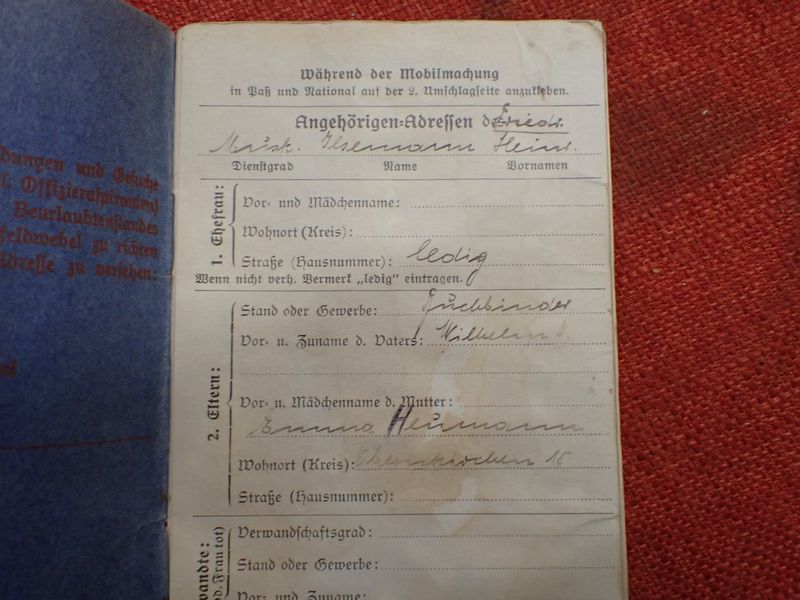 dungen und Gesuche
l. Offizieraspiranten)
Beurlaubtenstandes
feldwebel zu richten
Adresse zu versehen:
Während der Mobilmachung
in Paß und National auf der 2. Umschlagseite anzukleben.
Angehörigen=Adressen des
Friedr.
Musk. Ilsemann Heinr.
Dienstgrad Name Vornamen
1. Ehefrau:
Vor= und Mädchenname:
Wohnort (Kreis):
Straße (Hausnummer): ledig
Wenn nicht verh. Vermerk „ledig" eintragen.
2. Eltern:
Stand oder Gewerbe: Buchbinder
Vor= u. Zuname d. Vaters: Wilhelm
Vor= u. Mädchenname d. Mutter:
Emma Heumann
Wohnort (Kreis): 15
Straße (Hausnummer):
wandte:
d. Frau tot)
Verwandschaftsgrad:
Stand oder Gewerbe:
Vor= und Zuname: